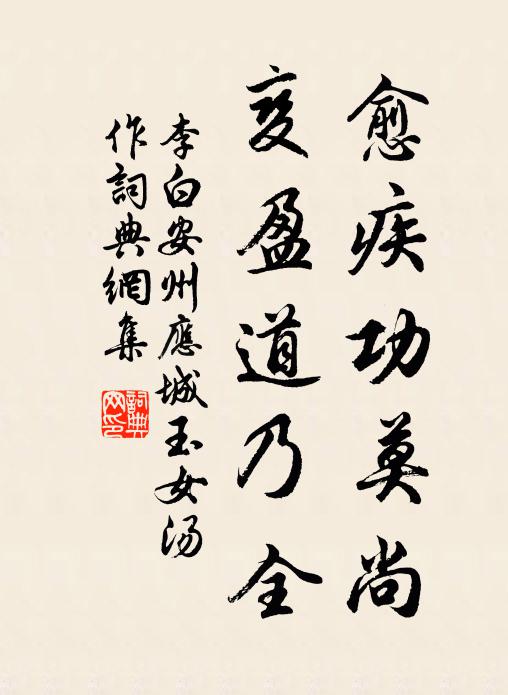 愈疾功莫尚
变盈道乃全
李白安州應城玉女汤
作詞典網集
詞典
网印